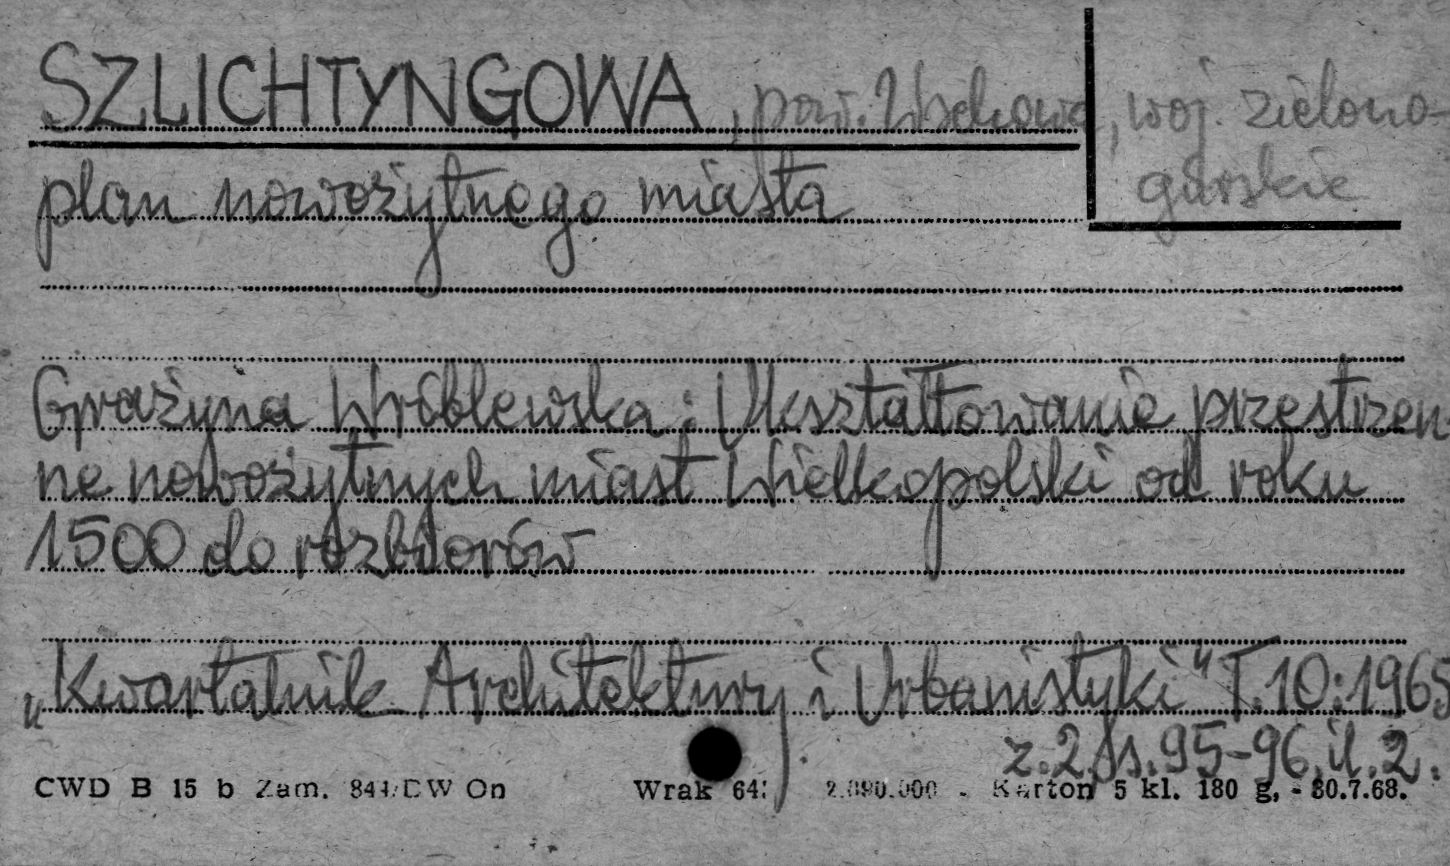 SZLICHTYNGOWA, pow. Wschowa, woj. zielono-
górskie
plan nowożytnego miasta
Grażyna Wróblewska: Ukształtowanie przestrzen
ne nowożytnych miast Wielkopolski od roku
1500 do rozbiorów
„Kwartalnik Architektury i Urbanistyki" T.10:1965
z.2, ss.95-96, il.2.
CWD B 15 b Zam. 844/DW On Wrak 643 2.090.000 - Karton 5 kl. 180 g, - 30.7.68.